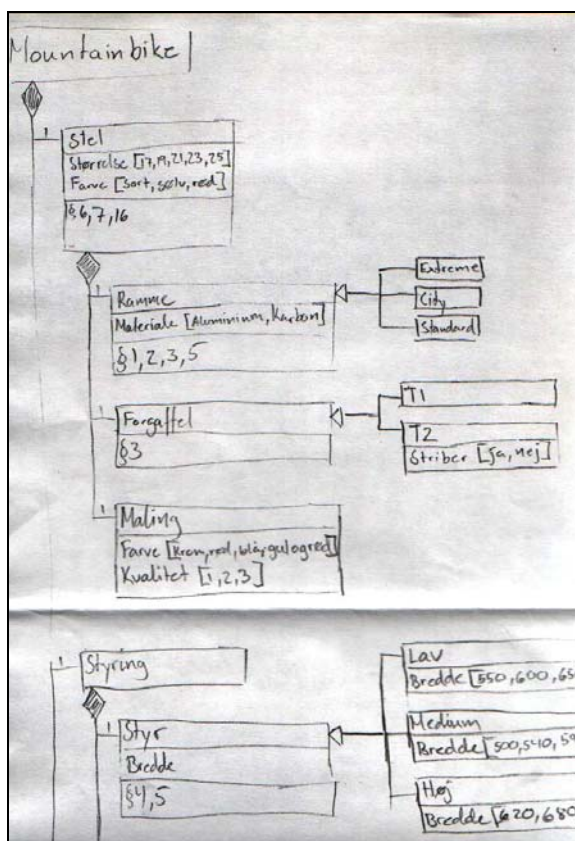 Mountainbike
1
Stel
Størrelse [17,19,21,23,25]
Farve [Sort, sølv, rød]
§6,7,16
1
Ramme
Materiale [Aluminium, Karbon]
§1,2,3,5
Extreme
City
Standard
1
Forgaffel
§3
T1
T2
Striber [ja, nej]
1
Maling
Farve [Krom, rød, blå, gul og rød]
Kvalitet [1,2,3]
1
Styring
1
Styr
Bredde
§4,5
Lav
Bredde [550,600,65
Medium
Bredde [500,540,59
Høj
Bredde [620,680